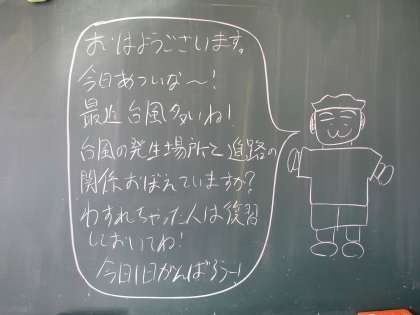 おはようございます。
今日あついな〜!
最近台風多いね!
台風の発生場所と進路の
関係おぼえていますか?
わすれちゃった人は復習
しておいてね!
今日1日がんばろうー!